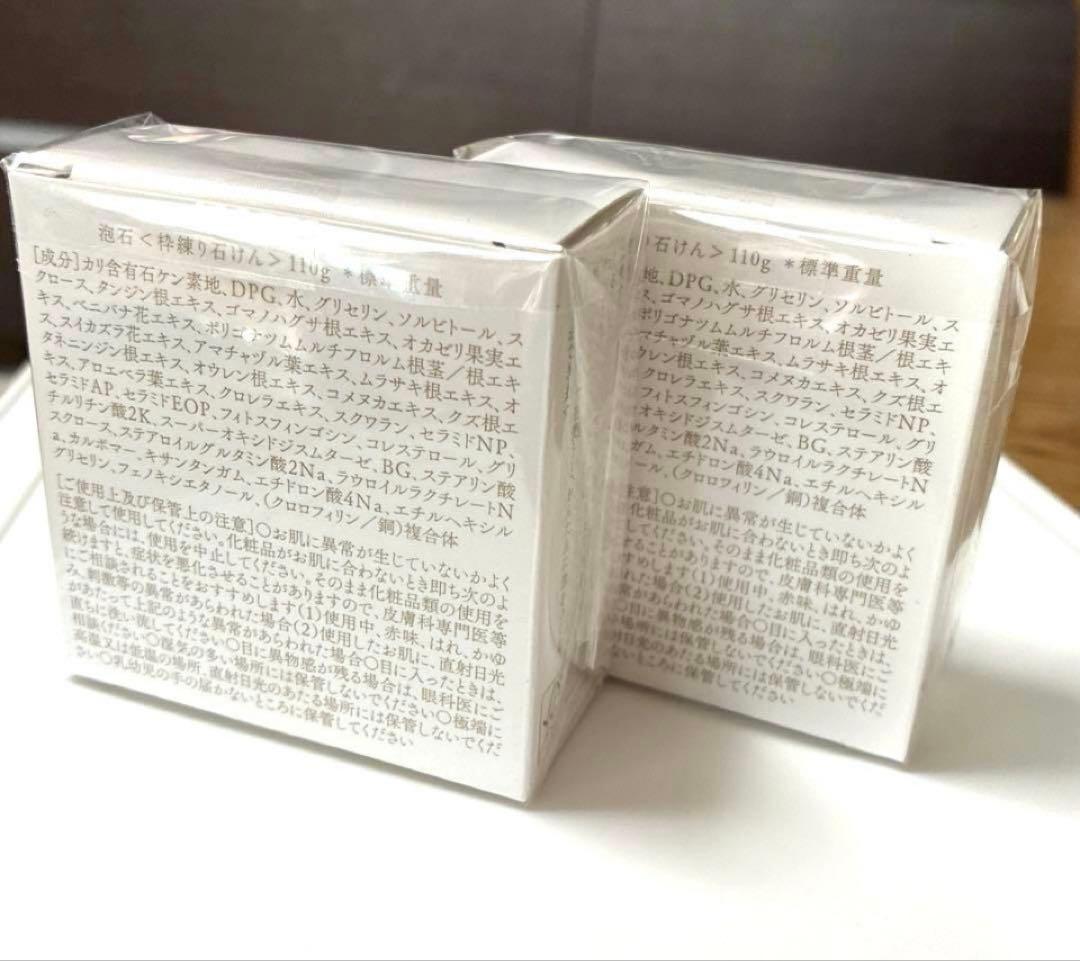 泡石＜枠練り石けん＞110g ＊標準重量
[成分]カリ含有石ケン素地、DPG、水、グリセリン、ソルビトール、ス
クロース、タンジン根エキス、ゴマノハグサ根エキス、オカゼリ果実エ
キス、ベニバナ花エキス、ポリゴナツムムルチフロルム根茎／根エキ
ス、スイカズラ花エキス、アマチャヅル葉エキス、ムラサキ根エキス、オ
タネニンジン根エキス、オウレン根エキス、コメヌカエキス、クズ根エ
キス、アロエベラ葉エキス、クロレラエキス、スクワラン、セラミドNP、
セラミドAP、セラミドEOP、フィトスフィンゴシン、コレステロール、グリ
チルリチン酸2K、スーパーオキシドジスムターゼ、BG、ステアリン酸
スクロース、ステアロイルグルタミン酸2Na、ラウロイルラクチレートN
a、カルボマー、キサンタンガム、エチドロン酸4Na、エチルヘキシル
グリセリン、フェノキシエタノール、(クロロフィリン／銅)複合体
[ご使用上及び保管上の注意]○お肌に異常が生じていないかよく
注意して使用してください。化粧品がお肌に合わないとき即ち次のよ
うな場合には、使用を中止してください。そのまま化粧品類の使用を
続けますと、症状を悪化させることがありますので、皮膚科専門医等
にご相談されることをおすすめします(1)使用中、赤味、はれ、かゆ
み、刺激等の異常があらわれた場合(2)使用したお肌に、直射日光
があたって上記のような異常があらわれた場合○目に入ったときは、
直ちに洗い流してください○目に異物感が残る場合は、眼科医にご
相談ください○湿気の多い場所には保管しないでください○極端に
高温又は低温の場所、直射日光のあたる場所には保管しないでくだ
さい○乳幼児の手の届かないところに保管してください
り石けん＞110g ＊標準重量
地、DPG、水、グリセリン、ソルビトール、ス
ス、ゴマノハグサ根エキス、オカゼリ果実エ
ポリゴナツムムルチフロルム根茎／根エキ
マチャヅル葉エキス、ムラサキ根エキス、オ
オウレン根エキス、コメヌカエキス、クズ根エ
クロレラエキス、スクワラン、セラミドNP、
フィトスフィンゴシン、コレステロール、グリ
オキシドジスムターゼ、BG、ステアリン酸
ルタミン酸2Na、ラウロイルラクチレートN
ガム、エチドロン酸4Na、エチルヘキシル
ール、(クロロフィリン／銅)複合体
注意]○お肌に異常が生じていないかよく
化粧品がお肌に合わないとき即ち次のよ
てください。そのまま化粧品類の使用を
ることがありますので、皮膚科専門医等
すめします(1)使用中、赤味、はれ、かゆ
た場合(2)使用したお肌に、直射日光
常があらわれた場合○目に入ったときは、
○目に異物感が残る場合は、眼科医にご
場所には保管しないでください○極端に
射日光のあたる場所には保管しないでくだ
ないところに保管してください